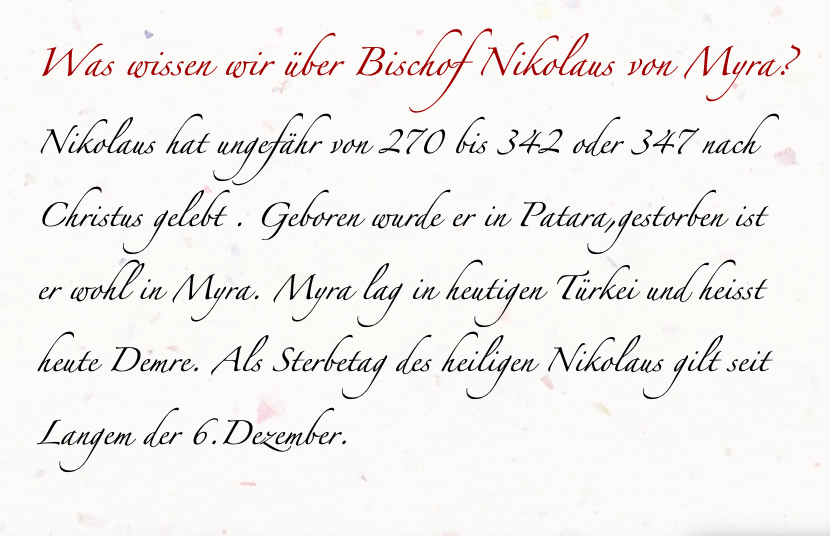 Was wissen wir über Bischof Nikolaus von Myra?
Nikolaus hat ungefähr von 270 bis 342 oder 347 nach
Christus gelebt . Geboren wurde er in Patara,gestorben ist
er wohl in Myra. Myra lag in heutigen Türkei und heisst
heute Demre. Als Sterbetag des heiligen Nikolaus gilt seit
Langem der 6.Dezember.